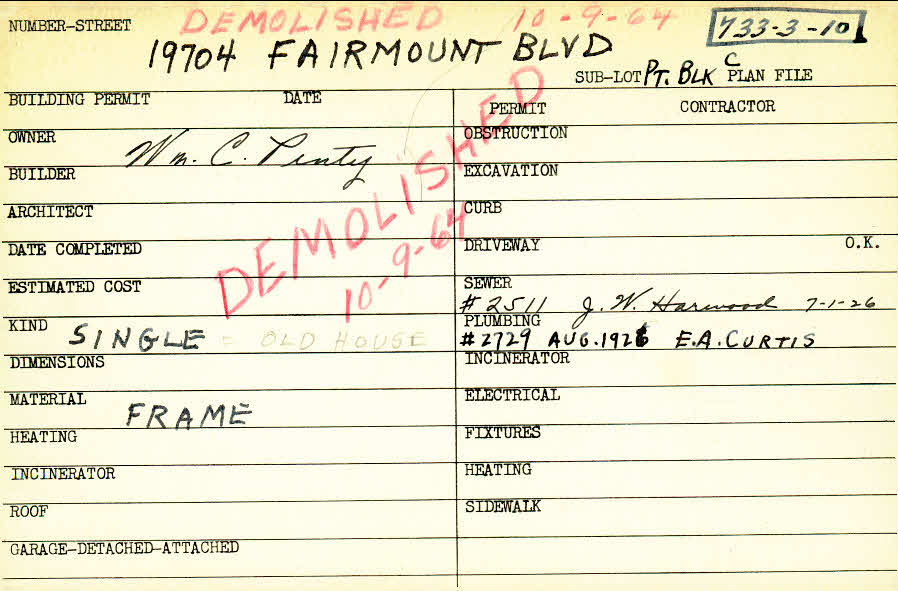 NUMBER-STREET DEMOLISHED 10-9-64 733-3-10
19704 FAIRMOUNT BLVD
SUB-LOT PT. BLK C PLAN FILE
BUILDING PERMIT DATE
PERMIT CONTRACTOR
OWNER Wm. C. Penty
OBSTRUCTION
BUILDER
EXCAVATION
ARCHITECT
CURB
DEMOLISHED
10-9-64
DATE COMPLETED
DRIVEWAY O.K.
ESTIMATED COST
SEWER
#2511 J. W. Harwood 7-1-26
KIND SINGLE = OLD HOUSE
PLUMBING
#2729 AUG. 1926 E.A. CURTIS
DIMENSIONS
INCINERATOR
MATERIAL FRAME
ELECTRICAL
HEATING
FIXTURES
INCINERATOR
HEATING
ROOF
SIDEWALK
GARAGE-DETACHED-ATTACHED